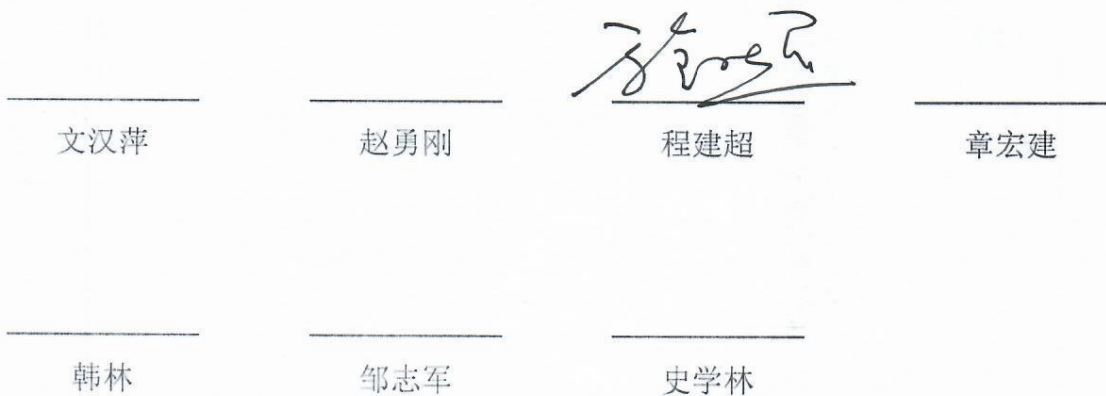 文汉萍 赵勇刚 程建超 章宏建
韩林 邹志军 史学林